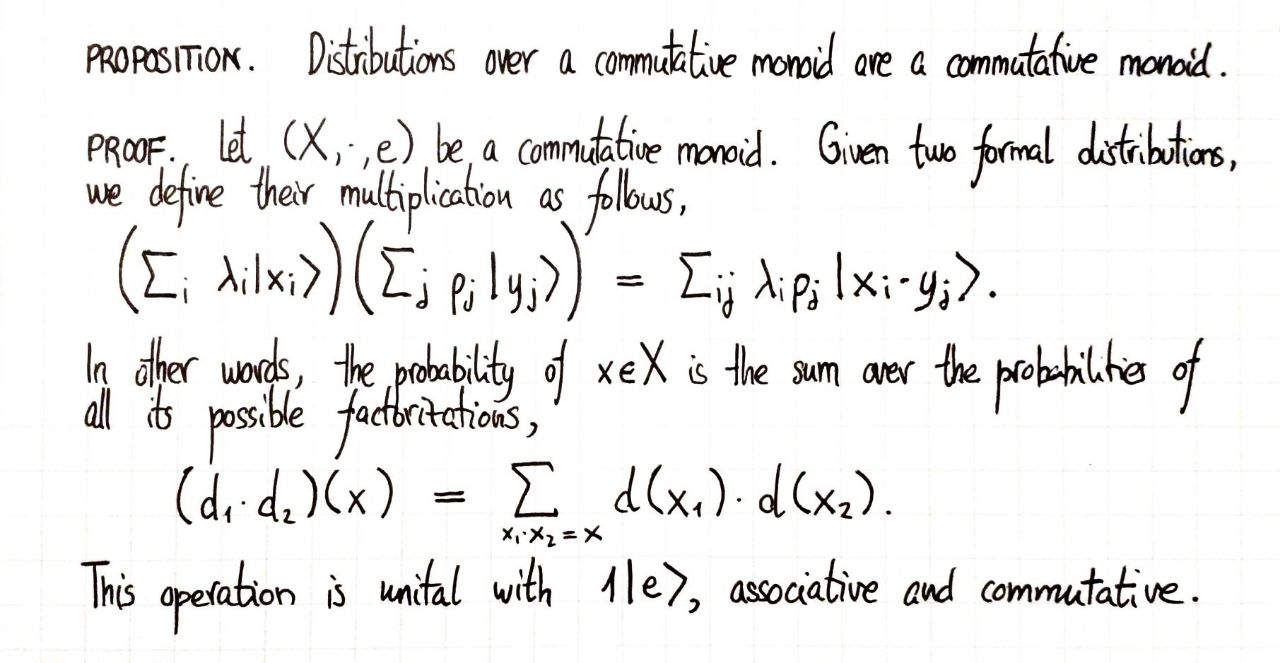 PROPOSITION. Distributions over a commutative monoid are a commutative monoid.
PROOF. Let (X,·,e) be a commutative monoid. Given two formal distributions,
we define their multiplication as follows,
(∑ᵢ λᵢ|xᵢ⟩)(∑ⱼ ρⱼ|yⱼ⟩) = ∑ᵢⱼ λᵢρⱼ |xᵢ·yⱼ⟩.
In other words, the probability of x∈X is the sum over the probabilities of
all its possible factoritations,
(d₁·d₂)(x) = ∑ d(x₁)·d(x₂).
x₁·x₂=x
This operation is unital with 1|e⟩, associative and commutative.